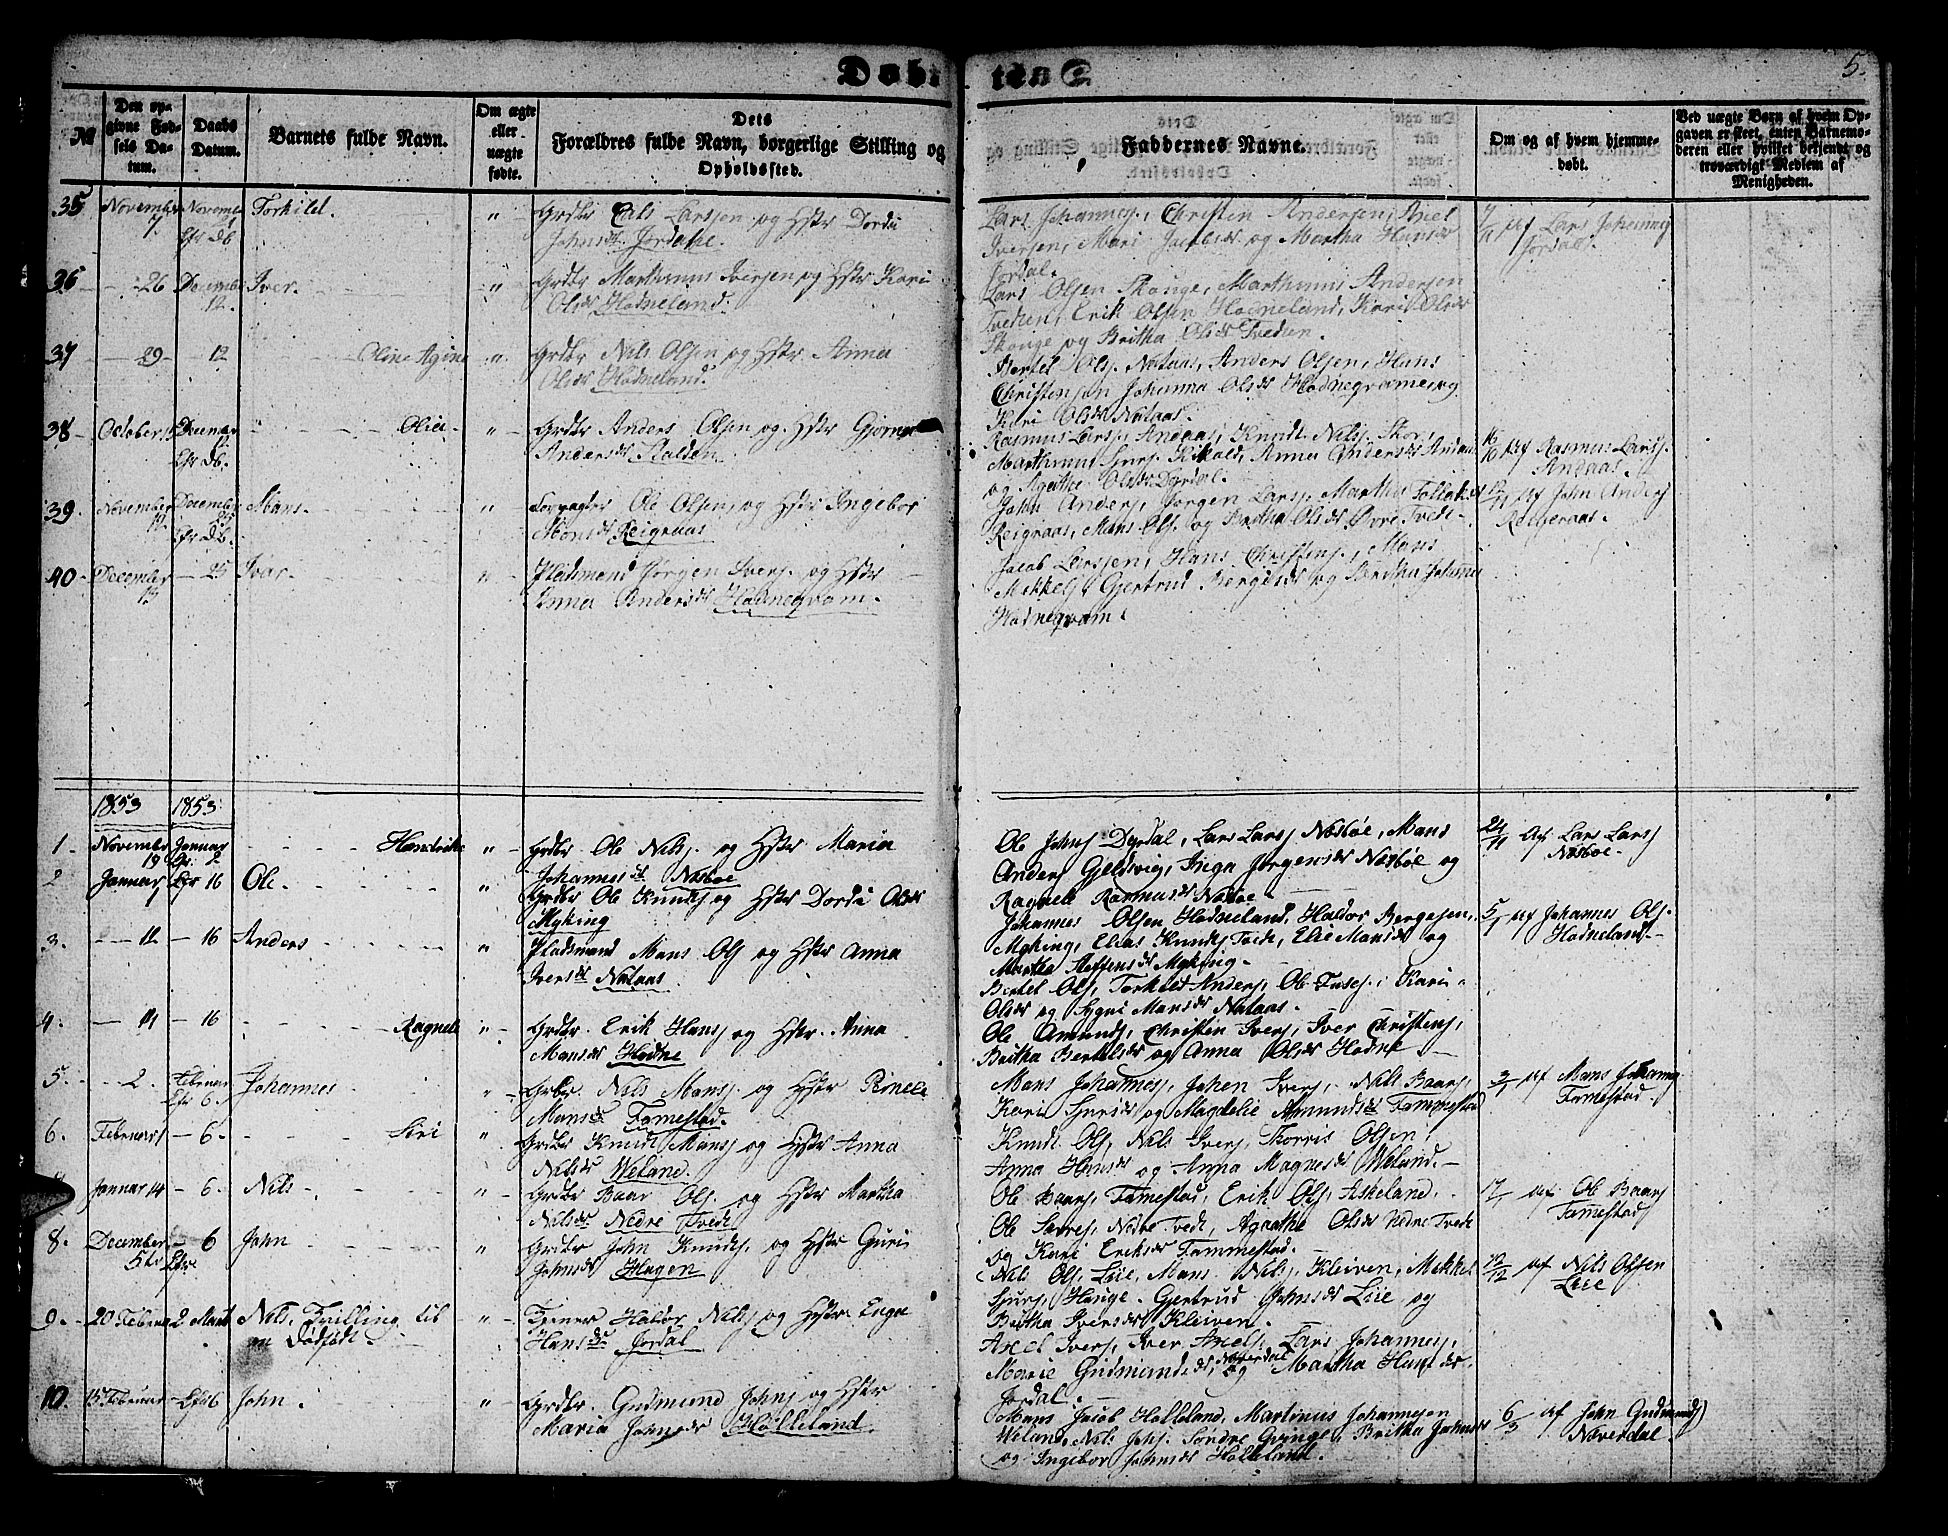 Døbte
5.
№
Den opgivne Fødsels Datum.
Daabs Datum.
Barnets fulde Navn.
Om ægte eller uægte fødte.
Dets Forældres fulde Navn, borgerlige Stilling og Opholdssted.
Faddernes Navne.
Om og af hvem hjemmedøbt.
Ved uægte Børn af hvem Opgaven er skeet, enten Barnemoderen eller hvilket bekjendt og troværdigt Medlem af Menigheden.
35 November 7. November Efr Db. Torkild. " Grdbr Lars Larsen og Hstr Dordi
Johnsdr Jordahl.
Lars Johannesj, Christen Andersen, Axel
Iversen, Mari Jacobsdr og Martha Hansdr
Jordal.
7/11 Af Lars Johannesj
Jordal.
36 - 26 December 12. Iver. " Grdbr Marthinus Iversen og Hstr Kari
Olsdr Hodneland.
Lars Olsen Skouge, Marthinus Andersen
Tvedten, Erik Olsen Hodneland, Kari Olsdr
Skouge og Britha Olsdr Tvedten.
37 - 29 - 12 Oline Agine " Grdbr Nils Olsen og Hstr Anna
Olsdr Hodneland.
Bertel Olsj. Nataas, Anders Olsen, Hans
Christensen Johanna Olsdr Hodneqvame, og
Kari Olsdr Nataas.
38 October December Efr Db. Olia " Grdbr Anders Olsen og Hstr Gjør
Andersdr
Rasmus Larsj, Andaas, Knudt Nilsj.
Marthinus Anna Andersdr Andaas
og Agathe Olsdr Dyrdal.
16/10 Af Rasmus Larsj.
Andaas.
39. November 12 December 25 Efr Db. Mans. " Forpagter Ole Olsen, og Hstr Ingebor
Monsdr Reigraas
John Andersj, Jørgen Larsj, Martha
Reigraas, Mans Olsj. og Britha Olsdr Tvedt
Af John Andersj
Reigeraas.
40. December 12 - 25 Ivar. " Pladsmand Jørgen Iversj. og Hstr
Anna Andersdr Hodneqvam.
Jacob Larssen, Hans Christensj., Mons
Mikkelsj. Gjertrud Børgesdr og Britha Johannes
Hodneqvam.
1853 1853
1. November 19 Januar 2 Hendrikke " Grdbr Ole Nilsj. og Hstr Maria
Johannesdr Næsbøe
Ole Johnsj Dyrdal, Lars Larsj Næsbøe, Mans
Andersj Gjeldsvig, Inga Jørgensdr Næsbøe og
Ragnele Rasmusdr Næsbøe
21/11 Af Lars Larsj
Næsbøe.
2 Januar Efr 16 Ole. " Grdbr Ole Knudsj og Hstr Dordi Olsdr
Myking
Johannes Olsen Hodneland, Haldor Børgesen,
Myking, Elias Knudsj Elie Mansdr og
Martha Steffensdr Myking.
5/1 Af Johannes Olsj.
Hodneland.
3. - 11 - 16 Anders " Pladsmand Mans Olsj og Hstr Anna
Iversdr Nataas
Bertel Olsj, Torkild Andersj, Ole Tufesj, Kari
Olsdr og Sygni Mansdr Nataas.
4. - 11 - 16 Ragnele " Grdbr. Erik Hansj og Hstr. Anna
Mansdr Hodne
Ole Amundsj, Christen Iversj, Iver Christensj,
Britha Bertelsdr og Anna Olsdr Hodne
5. - 2. Februar Efr 6. Johannes " Grdbr. Nils Mansj. og Hstr Pernele
Mansdr Famestad.
Mans Johannesj, Johan Iversj, Nils Baarsj
Kari og Magdelie Amundsdr Fammestad
3/ Af Mans Johannesj
Famestad.
6. Februar 1 - 6. Siri " Grdbr Knudt Mansj og Hstr Anna
Nilsdr Weland.
Knudt Olsj, Nils Iversj, Thorris Olsen,
Anna Hansdr og Anna Magnesdr Weland.
Januar 14 - 6. Nils " Grdbr Baar Olsj. og Hstr Martha
Nilsdr Nedre Tvedt
Ole Baarsj, Famestad, Erik Olsj, Askeland,
Ole Nedre Tvedt, Agathe Olsdr Nedre Tvedt
og Kari Eriksdr Fammestad.
17/1 Af Ole Baarsj
Famestad
8. December 5te - 6 Efr John " Grdbr John Knudsj. og Hstr Guri
Johnsdr Hagen
Nils Olsj, Liie, Mans Nilsj, Kleiven, Mikkel
Sjursj, Hauge, Gjertrud Johnsdr Liie og
Britha Iversdr Kleiven.
/12 Af Nils Olsen
Liie
9. 20 Februar 2 Marts Nils, Tvilling til
en Dødfødt. " Tjener Haldor Nilsj og Hstr Inga
Hansdr Jordal
Axel Iversj, Iver Axelsj, Lars Johannesj,
Marie Gudmundsdr, Næverdal og Martha Hansdr
Jordal.
10. 15 Februar Efr 6 John. " Grdbr. Gudmund Johnsj og Hstr
Maria Johnsdr Holleland
Mans Jacob Holleland, Martinus Johannesen
Weland, Nils Johsj. Søndre Qvinge, Britha Johnsdr
og Ingebor Johnsdr Holleland.
6/3 Af John Gudmundsj
Næverdal.